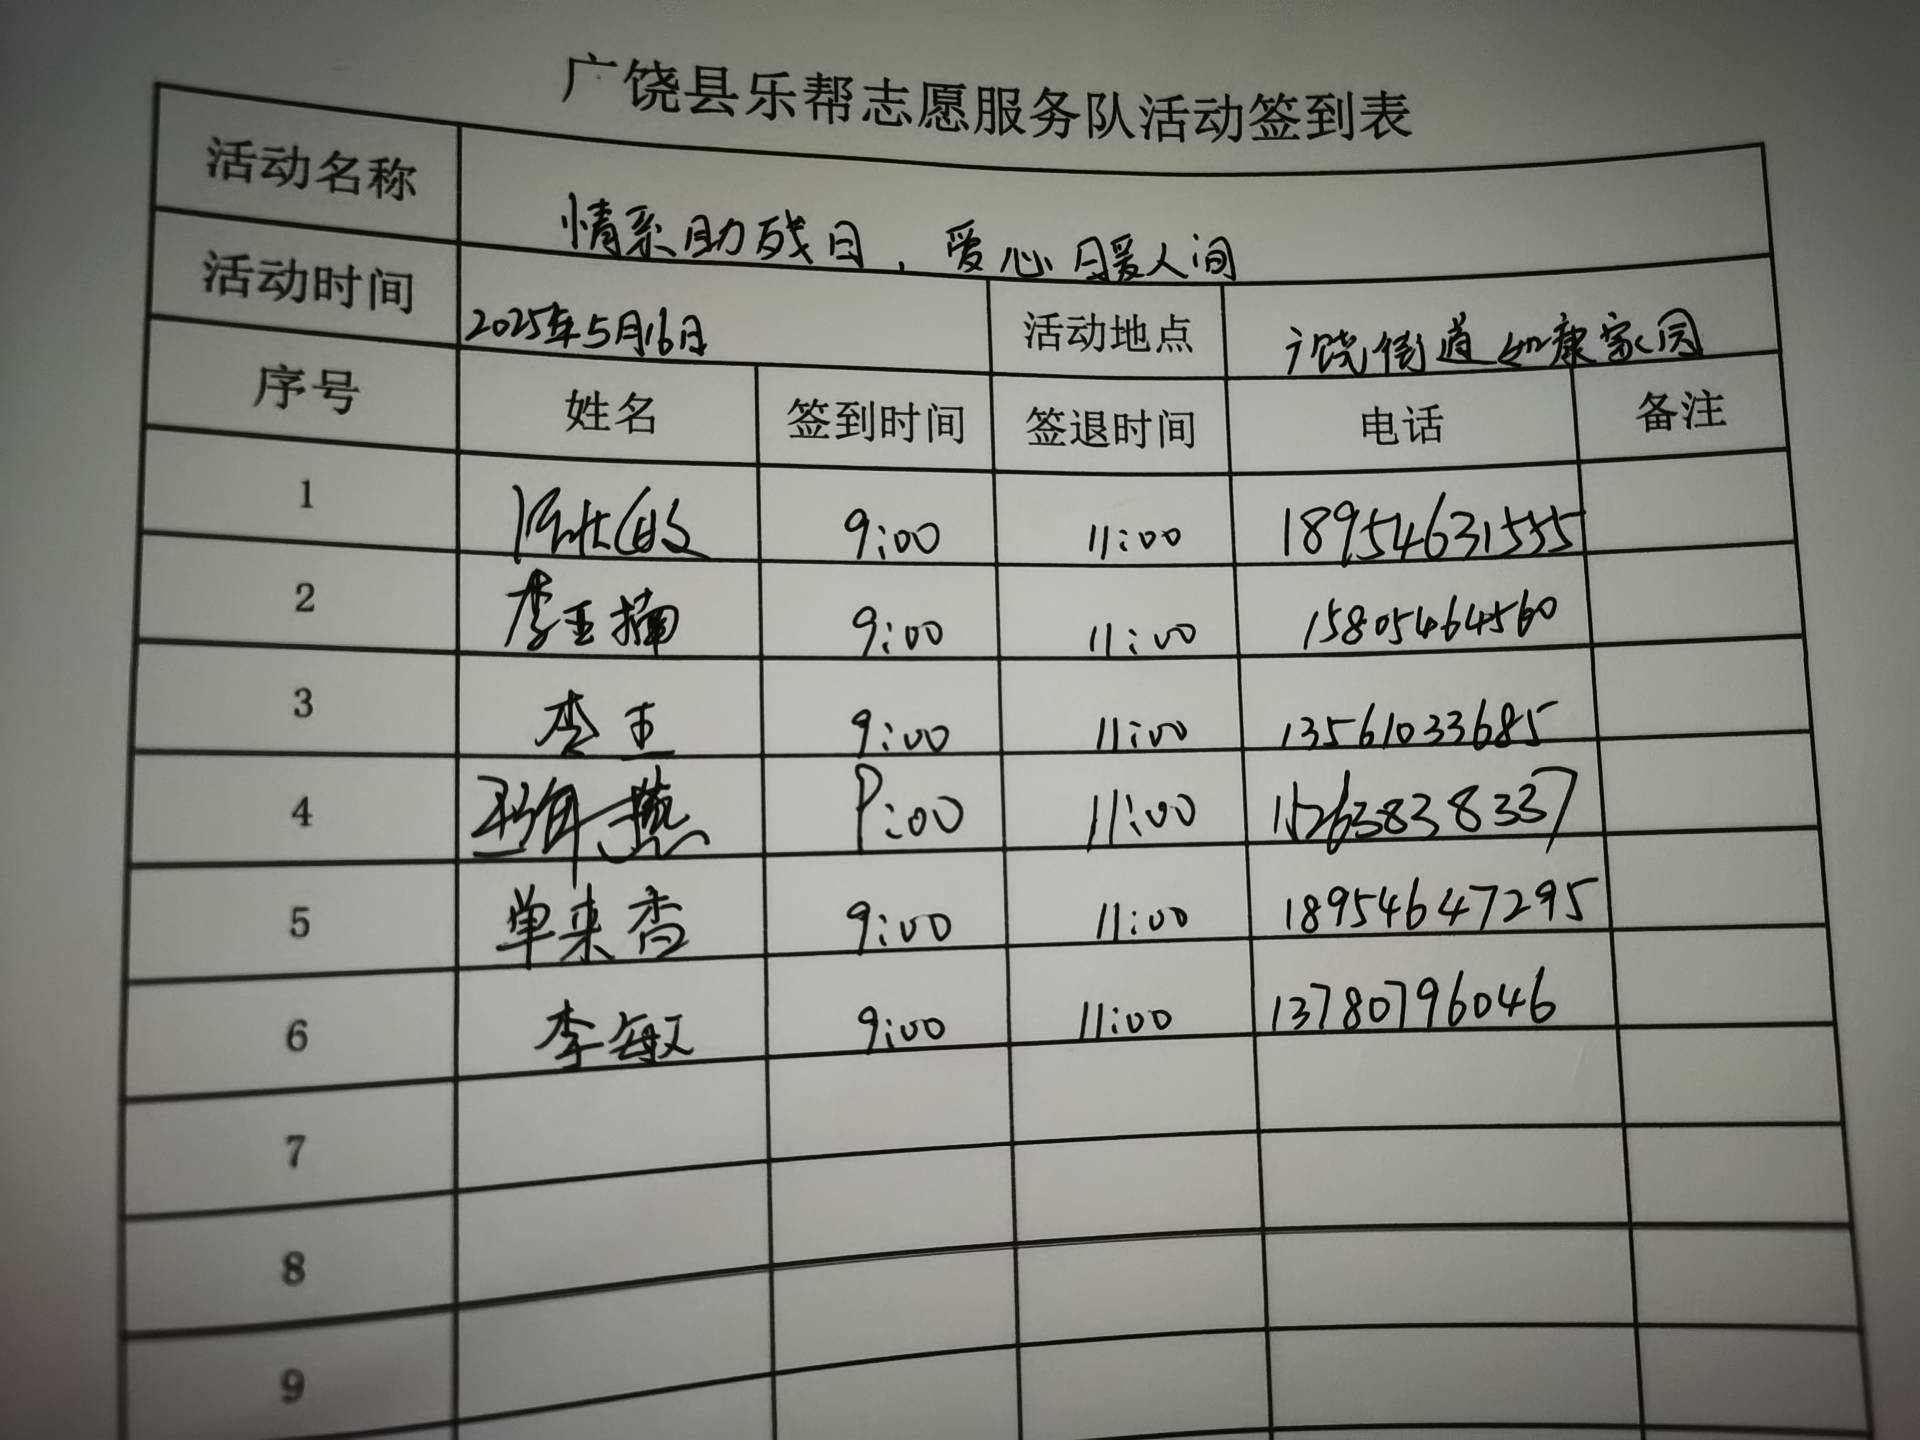 广饶县乐帮志愿服务队活动签到表
活动名称 情系助残日，爱心暖人间
活动时间 2025年5月16日 活动地点 广饶街道如康家园
序号 姓名 签到时间 签退时间 电话 备注
1 9:00 11:00 18954631555
2 李玉楠 9:00 11:00 15805464560
3 李玉 9:00 11:00 13561033685
4 9:00 11:00 15263838337
5 单来香 9:00 11:00 18954647295
6 李敏 9:00 11:00 13780796046
7
8
9